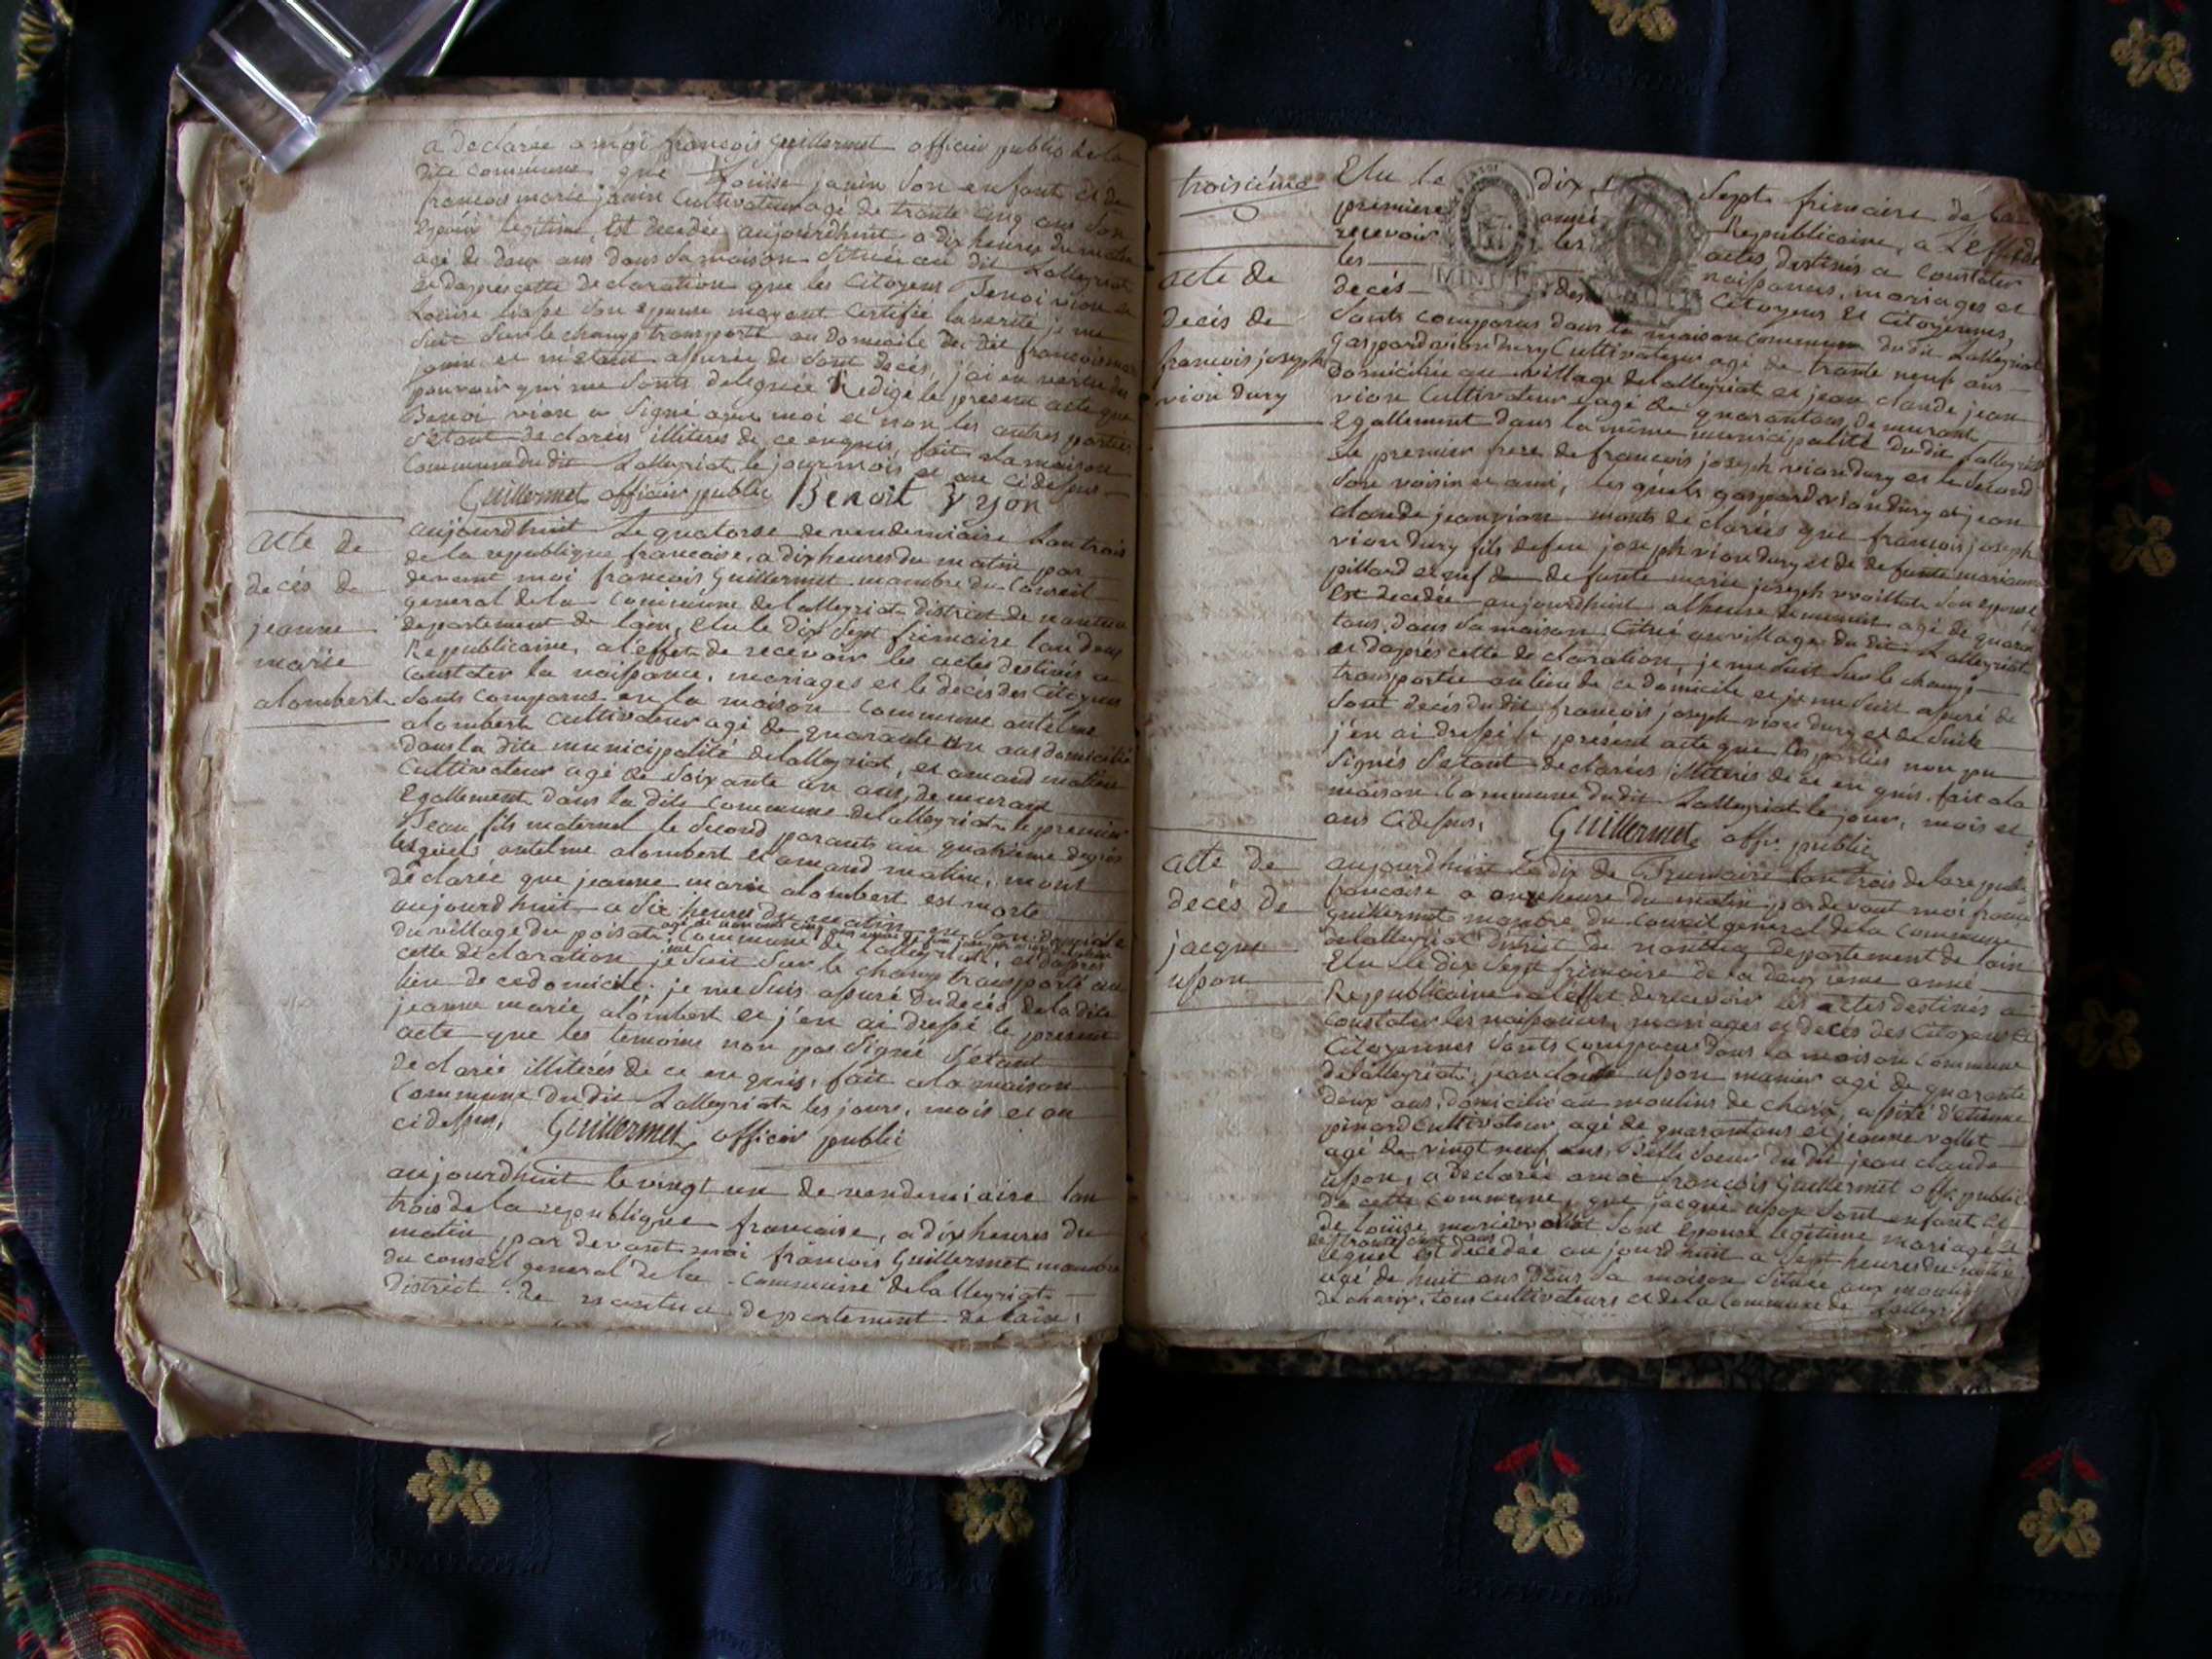 a declarée a moi françois Guillermet officier public de la
dite commune que Loüise janin son enfant et de
françois marie janin Cultivateur agé de trante cinq ans son
epoux legitime, est decedée aujourdhuit a dix heures du matin
agé de deux ans dans sa maison située au dit Lalleyriat
et daprès cette declaration que les Citoyens Benoi vion et
Loüise son epouse mayant certifié la verité je me
suis sur le champ transporté au Domicile du dit françois marie
janin et m'etant assurée de sont decés, j'ai en vertu des
pouvoir qui me sonts delegués Redigé le present acte que
Benoi vion a signé avec moi et non les autres parties
s'etant declarées illiteres de ce enquis, fait a la maison
Commune du dit Lalleyriat le jour mois et an cidessus
Guillermet officier public Benoit Vyon
acte de
decés de
jeanne
marie
alombert
aujourdhuit Le quatorze de vendemiaire Lan trois
de la republique francaise, a dix heures du matin par
devant moi francois Guillermet mambre du Conseil
general de la Commune de lalleyriat district de nantua
departement de lain, Elu le Dix Sept frimaire lan deux
Republicaine, a l'effet de recevoir les actes destinés a
Constater la naissance, mariages et le decés des Citoyens
sonts comparus en la maison commune antelme
alombert cultivateur agé de quarante un ans domicilié
dans la dite municipalité de lalleyriat, et amand mathieu
Cultivateur agé de soixante un ans, demurant
Egallement dans la dite commune de lalleyriat le premier
Jean fils maternel le second parants au quatrieme degrés
lesquels antelme alombert et amand mathieu, mont
declarée que jeanne marie alombert est morte
aujourdhuit a six heures du matin en son domicile
du village du poisat, commune de lalleyriat, et daprès
cette declaration je me suit sur le champ transporté au
lieu de ce domicile, je me suis assuré du decés de la dite
jeanne marie alombert et j'en ai dressé le present
acte que les temoins non pas signé s'etant
declarée illiterés de ce enquis, fait a la maison
Commune du dit Lalleyriat les jours, mois et an
cidessus, Guillermet officier public
aujourdhuit le vingt un de vendemiaire lan
trois de la republique francaise, a dix heures du
matin par devant moi françois Guillermet mambre
du conseil general de la Commune de lalleyriat
District de nantua departement de lain,
troisième
Elu le dix Sept frimaire de la
premiere année Republicaine, a L'effet de
recevoir les actes destinés a constater
les naissances, mariages et
decés des Citoyens et Citoyennes,
acte de
decés de
francois joseph
vion dury
sonts comparus dans la maison commune du dit Lalleyriat
Gaspard vion dury Cultivateur agé de trante neuf ans
domiciliée au village de lalleyriat et jean claude jean
vion Cultivateur agé de quarantans, demurant
Egallement dans la même municipalité du dit Lalleyriat
Le premier frere de francois joseph vion dury et le second
son voisin et ami, les quels gaspard vion dury et jean
claude jean vion monts declarées que francois joseph
vion dury fils de feu joseph vion dury et de defunte marianne
pillard et de defunte marie joseph son epouse
Est decedée aujourdhuit a lheure de minuit agé de quaran
tans, dans sa maison Citué au village du dit Lalleyriat
et daprés cette declaration, je me suit sur le champ
transportée au lieu de ce domicile et je me suit assuré de
sont decés du dit francois joseph vion dury et de suite
j'en ai dressé le present acte que les parties non pu
signés s'etant declarées illiterés de ce enquis fait a la
maison Commune du dit Lalleyriat le jour, mois et
ans cidessus, Guillermet offr. public
acte de
decés de
jacque
usson
aujourdhuit le dix de Brumaire lan trois de la republi
francaise a onze heure du matin par devant moi françois
guillermet mambre du conseil general de la commune
de lalleyriat district de nantua departement de lain
Elu le dix Sept frimaire de la deuxieme année
Republicaine a l'effet de recevoir les actes destinés a
constater les naissances, mariages et decés des Citoyens et
Citoyennes sonts comparus dans la maison commune
de lalleyriat, jean claude usson manier agé de quarante
deux ans, domicilié au moulins de charix, assisté d'etienne
pinard cultivateur, agé de quarantans et jeanne vallet
agé de vingt neuf ans, Belle soeur du dit jean claude
usson, a declarée a moi françois Guillermet offr. public
de cette commune, que jacque usson sont enfant et
de loüise marie vallet sont epouse legitime mariagé
de trante sept ans
lequel est decedée aujourdhuit a sept heures du matin
agé de huit ans dans sa maison située aux moulins
de charix, tous cultivateurs et de la Commune de Lalleyriat